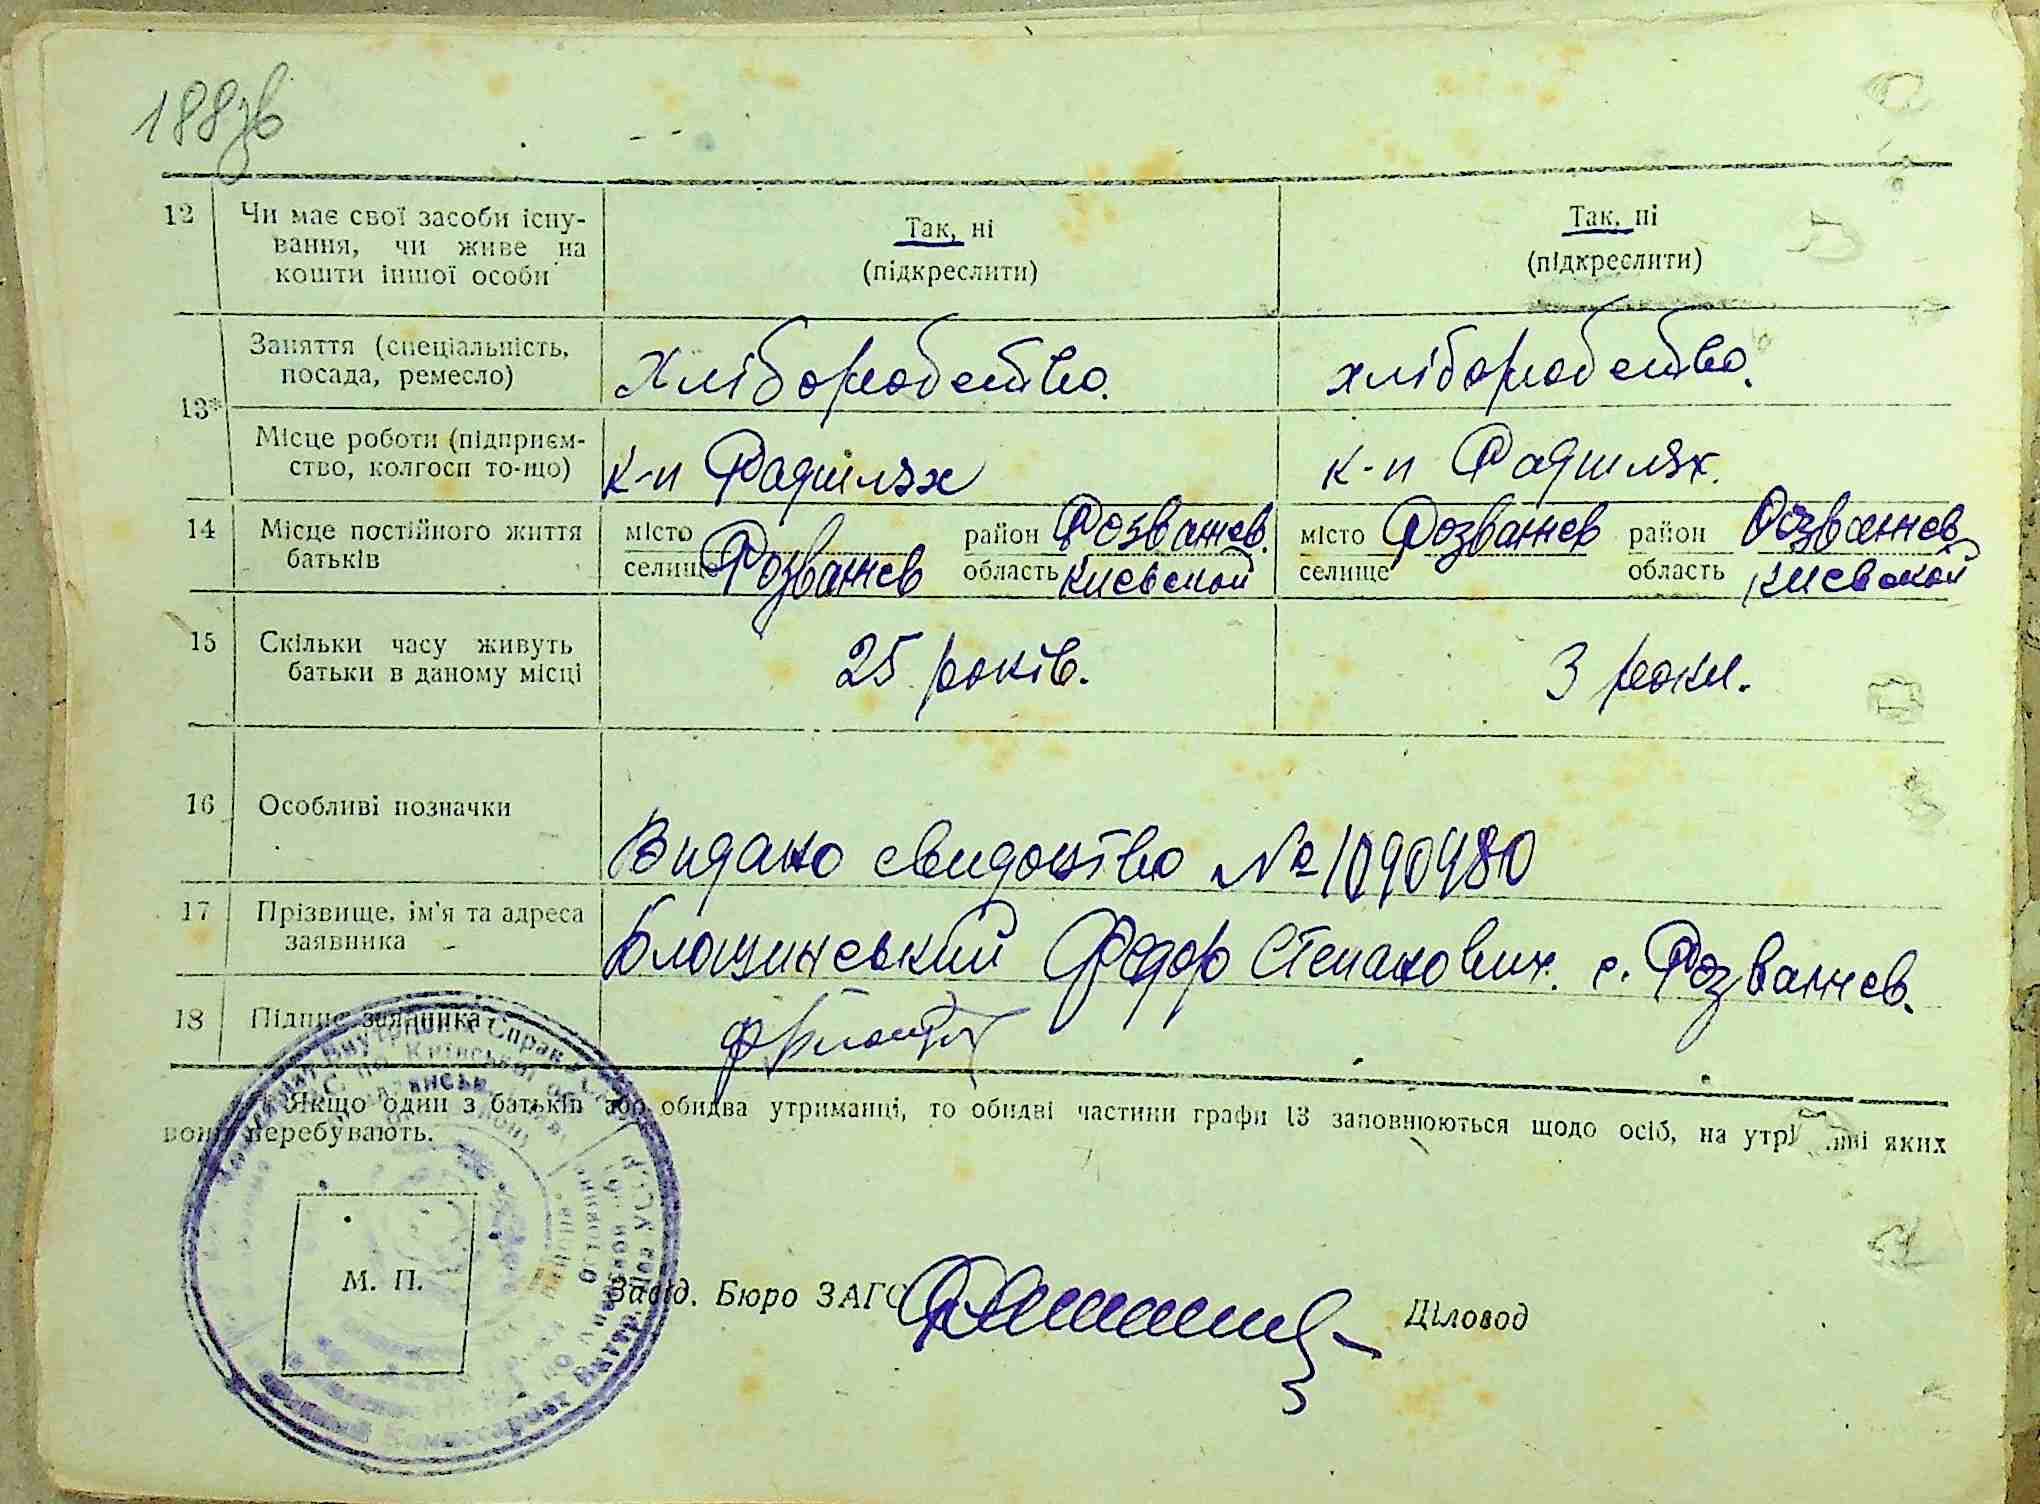 188зв
12 Чи має свої засоби існу-
вання, чи живе на
кошти іншої особи
Так, ні
(підкреслити)
Так, ні
(підкреслити)
13*
Заняття (спеціальність,
посада, ремесло)
Хліборобство.
хліборобство.
Місце роботи (підприєм-
ство, колгосп то-що)
к-п Радшлях
к-п Радшлях.
14 Місце постійного життя
батьків
місто район Розважев.
селище Розважев область Киевской
місто Розважев район Розважев
селище область Киевской
15 Скільки часу живуть
батьки в даному місці
25 років.
3 роки.
16 Особливі позначки
Видано свидоцтво № 1090480
17 Прізвище, ім'я та адреса
заявника
Блощинський Федор Степанович. с. Розважев.
18 Підпис заявника
Якщо один з батьків або обидва утриманці, то обидві частини графи 13 заповнюються щодо осіб, на утриманні яких
вони перебувають.
М. П.
Завід. Бюро ЗАГС
Діловод